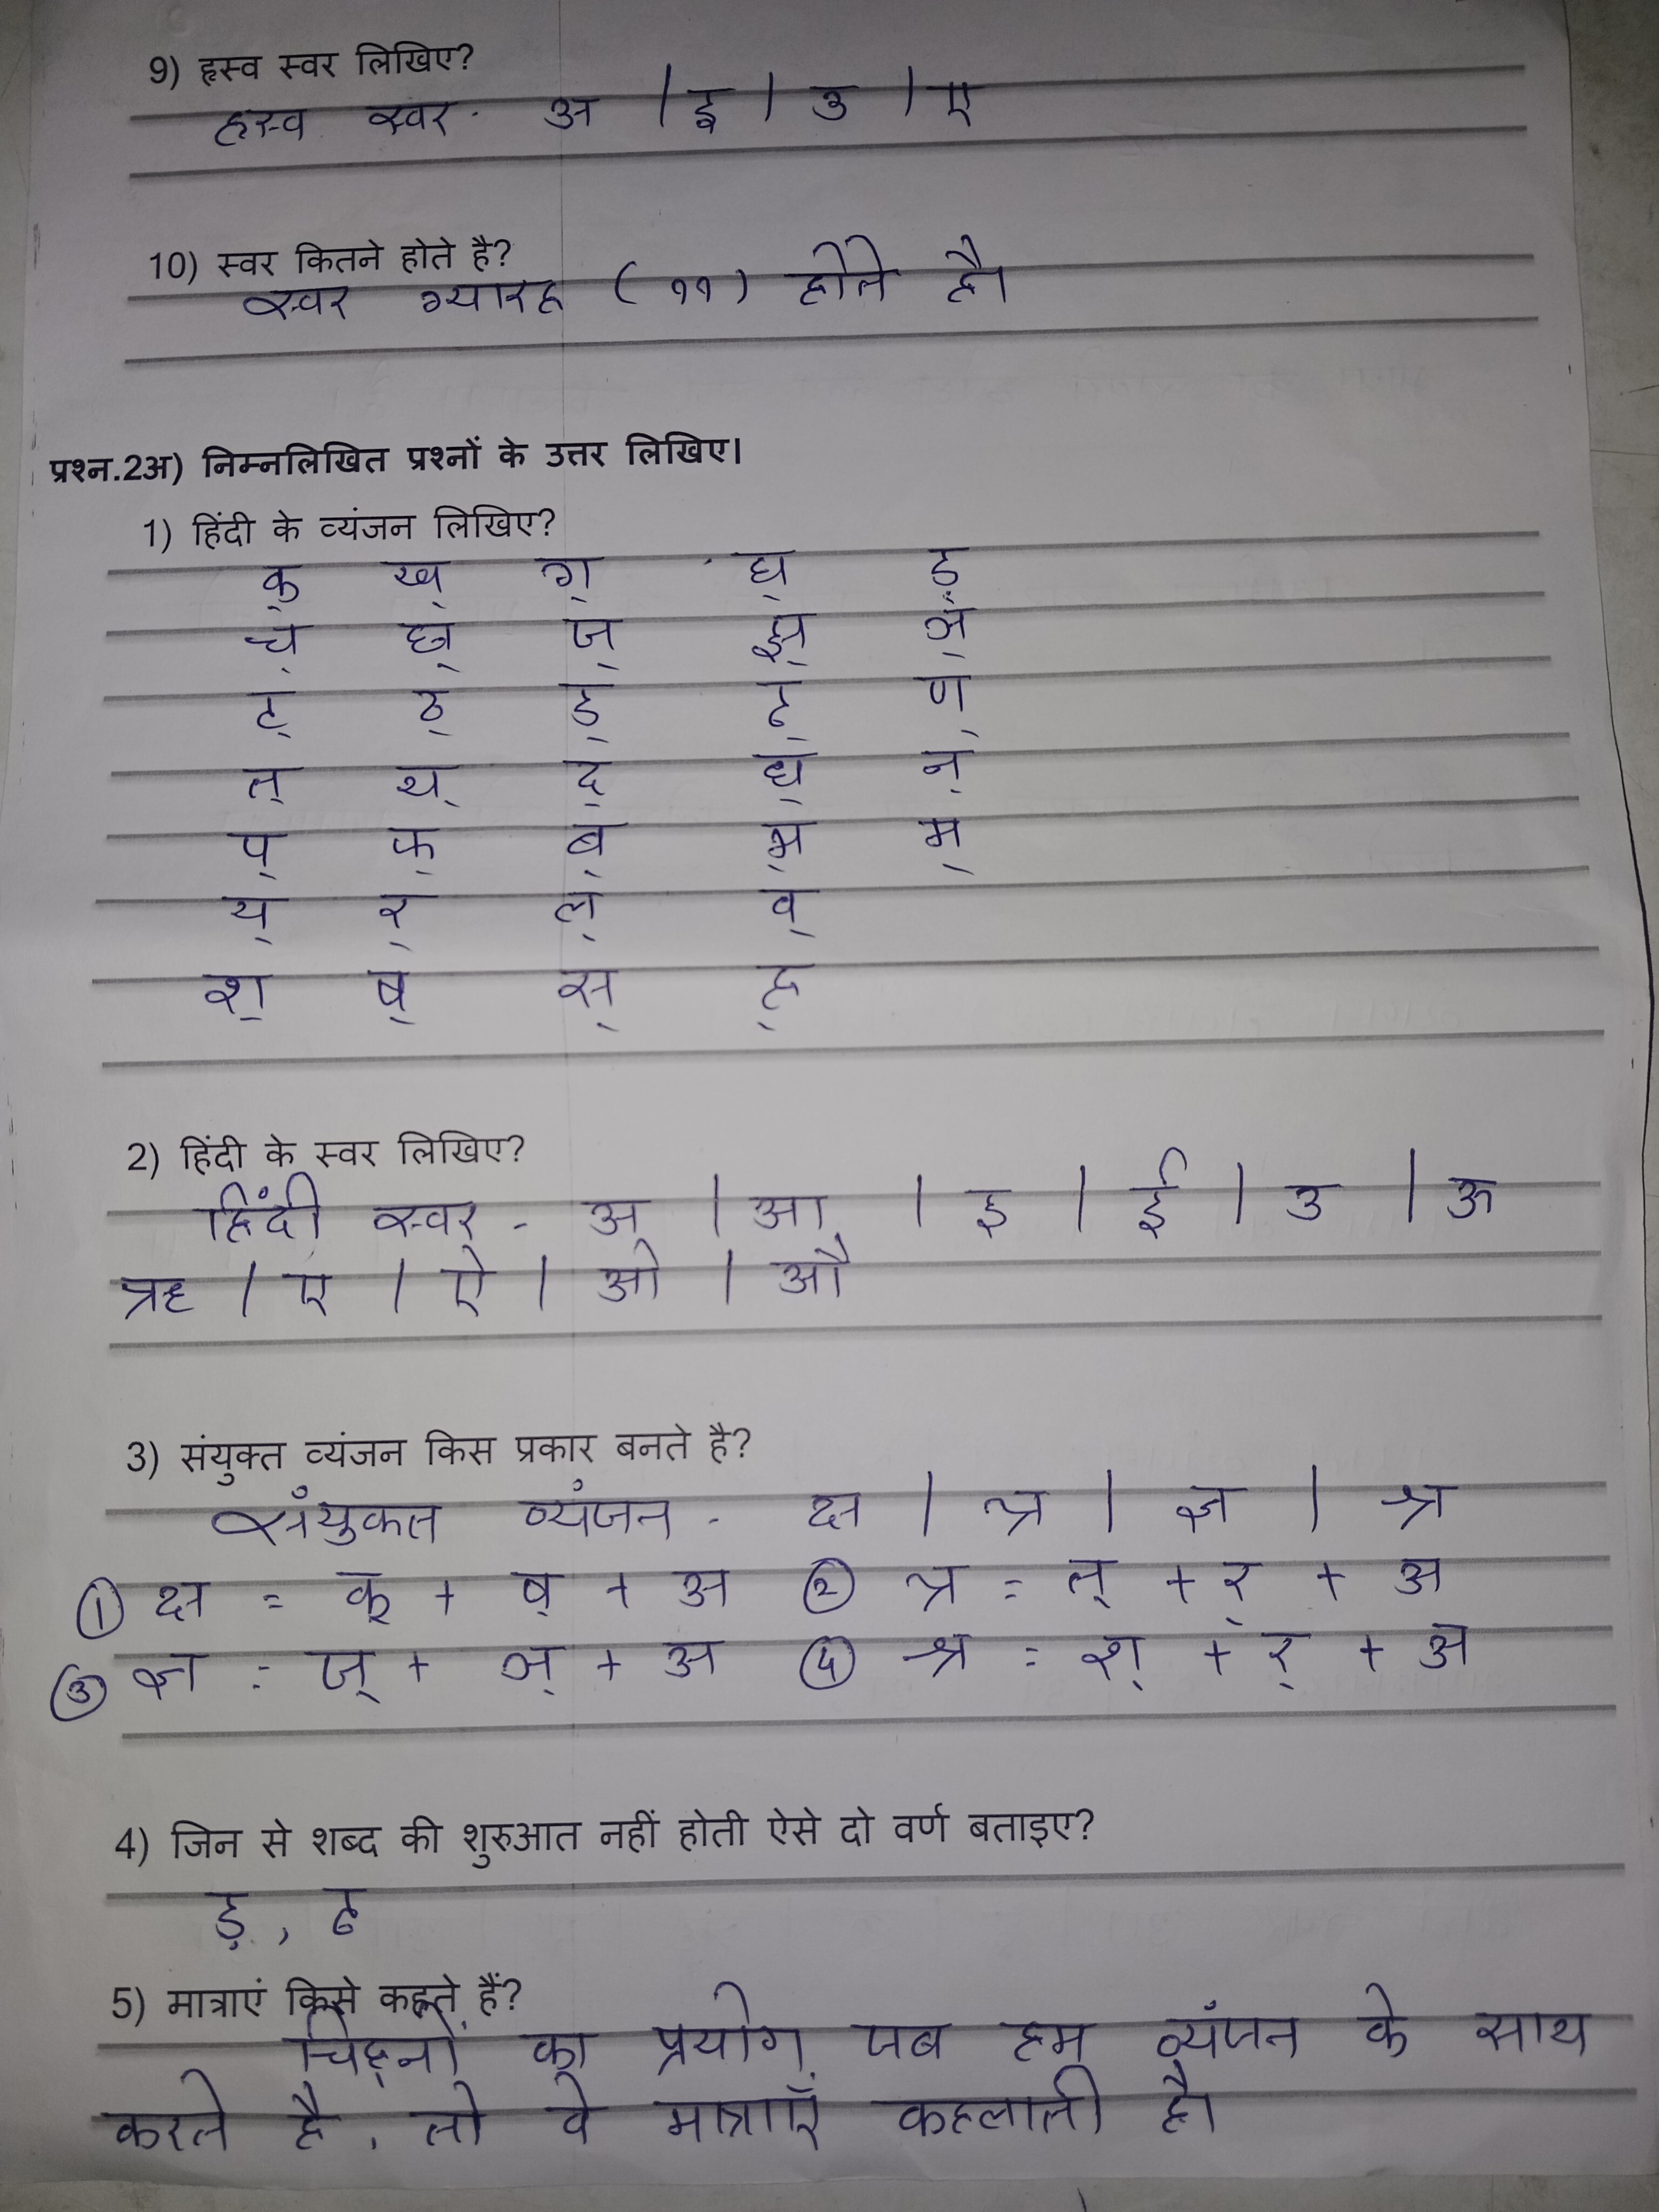 9) हृस्व स्वर लिखिए?
हृस्व स्वर - अ | इ | उ | ए
10) स्वर कितने होते है?
स्वर ग्यारह (११) होते है।
प्रश्न.2अ) निम्नलिखित प्रश्नों के उत्तर लिखिए।
1) हिंदी के व्यंजन लिखिए?
क् ख् ग् घ् ङ्
च् छ् ज् झ् ञ्
ट् ठ् ड् ढ् ण्
त् थ् द् ध् न्
प् फ् ब् भ् म्
य् र् ल् व्
श् ष् स् ह्
2) हिंदी के स्वर लिखिए?
हिंदी स्वर - अ | आ | इ | ई | उ | ऊ
ऋ | ए | ऐ | ओ | औ
3) संयुक्त व्यंजन किस प्रकार बनते है?
संयुक्त व्यंजन - क्ष | त्र | ज्ञ | श्र
① क्ष = क् + ष् + अ ② त्र = त् + र् + अ
③ ज्ञ = ज् + ञ् + अ ④ श्र = श् + र् + अ
4) जिन से शब्द की शुरुआत नहीं होती ऐसे दो वर्ण बताइए?
ड़ , ढ
5) मात्राएं किसे कहते हैं?
चिह्नों का प्रयोग जब हम व्यंजन के साथ
करते है, तो वे मात्राएँ कहलाती है।